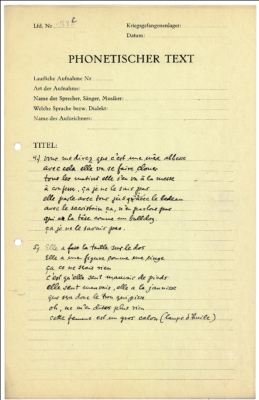 Lfd. Nr.
Kriegsgefangenenlager:
Datum:
PHONETISCHER TEXT
Lautliche Aufnahme Nr.
Art der Aufnahme:
Name der Sprecher, Sänger, Musiker:
Welche Sprache bezw. Dialekt:
Name des Aufzeichners:
TITEL:
4.) vous me direz que c'est une
avec cela elle va se faire
tous les matins elle s'en va à la messe
à confesse, ça je ne le sais pas
elle parle avec tous
avec le sacristain ça, n'en parlons pas
qui a la tête comme un bulldog
ça je ne le savais pas.
5) Elle a fait la taille sur le dos
Elle a une figure comme une singe
ça ce ne serais rien
c'est qu'elle sent mauvais de pieds
elle sent mauvais, elle a la jaunisse
oh, ne m'en dites plus rien
cette femme est un gros